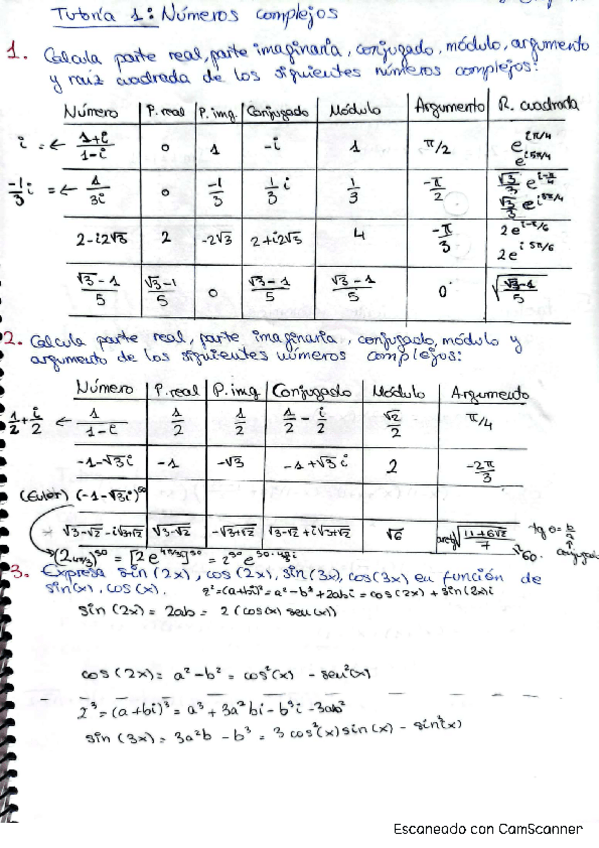 Tutoría 1: Números complejos
1. Calcula parte real, parte imaginaria, conjugado, módulo, argumento
y raíz cuadrada de los siguientes números complejos:
Número | P. real | P. img | Conjugado | Módulo | Argumento | R. cuadrada
i = ← (1+i)/(1-i) | 0 | 1 | -i | 1 | π/2 | e^(iπ/4) e^(i5π/4)
-1/3 i = ← 1/(3i) | 0 | -1/3 | 1/3 i | 1/3 | -π/2 | √3/3 e^(i-π/4) √3/3 e^(i3π/4)
2-i2√3 | 2 | -2√3 | 2+i2√3 | 4 | -π/3 | 2e^(i-π/6) 2e^(i5π/6)
(√3-1)/5 | (√3-1)/5 | 0 | (√3-1)/5 | (√3-1)/5 | 0 | √((√3-1)/5)
2. Calcula parte real, parte imaginaria, conjugado, módulo y
argumento de los siguientes números complejos:
Número | P. real | P. img | Conjugado | Módulo | Argumento
1/2 + i/2 ← 1/(1-i) | 1/2 | 1/2 | 1/2 - i/2 | √2/2 | π/4
-1-√3i | -1 | -√3 | -1+√3i | 2 | -2π/3
(Euler) (-1-√3i)^50
√3-√2 - i√3+√2 | √3-√2 | -√3+√2 | √3-√2 + i√3+√2 | √6 | arctg √((11+6√2)/7) tg θ = b/a conjugado
(2_(4π/3))^50 = [2e^(4π/3i)]^50 = 2^50 e^(50·4π/3i)
3. Expresa sin(2x), cos(2x), sin(3x), cos(3x) en función de
sin(x), cos(x). z²=(a+bi)²=a²-b²+2abi=cos(2x)+sin(2x)i
sin(2x)= 2ab = 2(cos(x) sen(x))
cos(2x)= a²-b² = cos²(x) - sen²(x)
z³=(a+bi)³= a³+3a²bi-b³i-3ab²
sin(3x)= 3a²b-b³ = 3cos²(x)sin(x) - sin³(x)
Escaneado con CamScanner